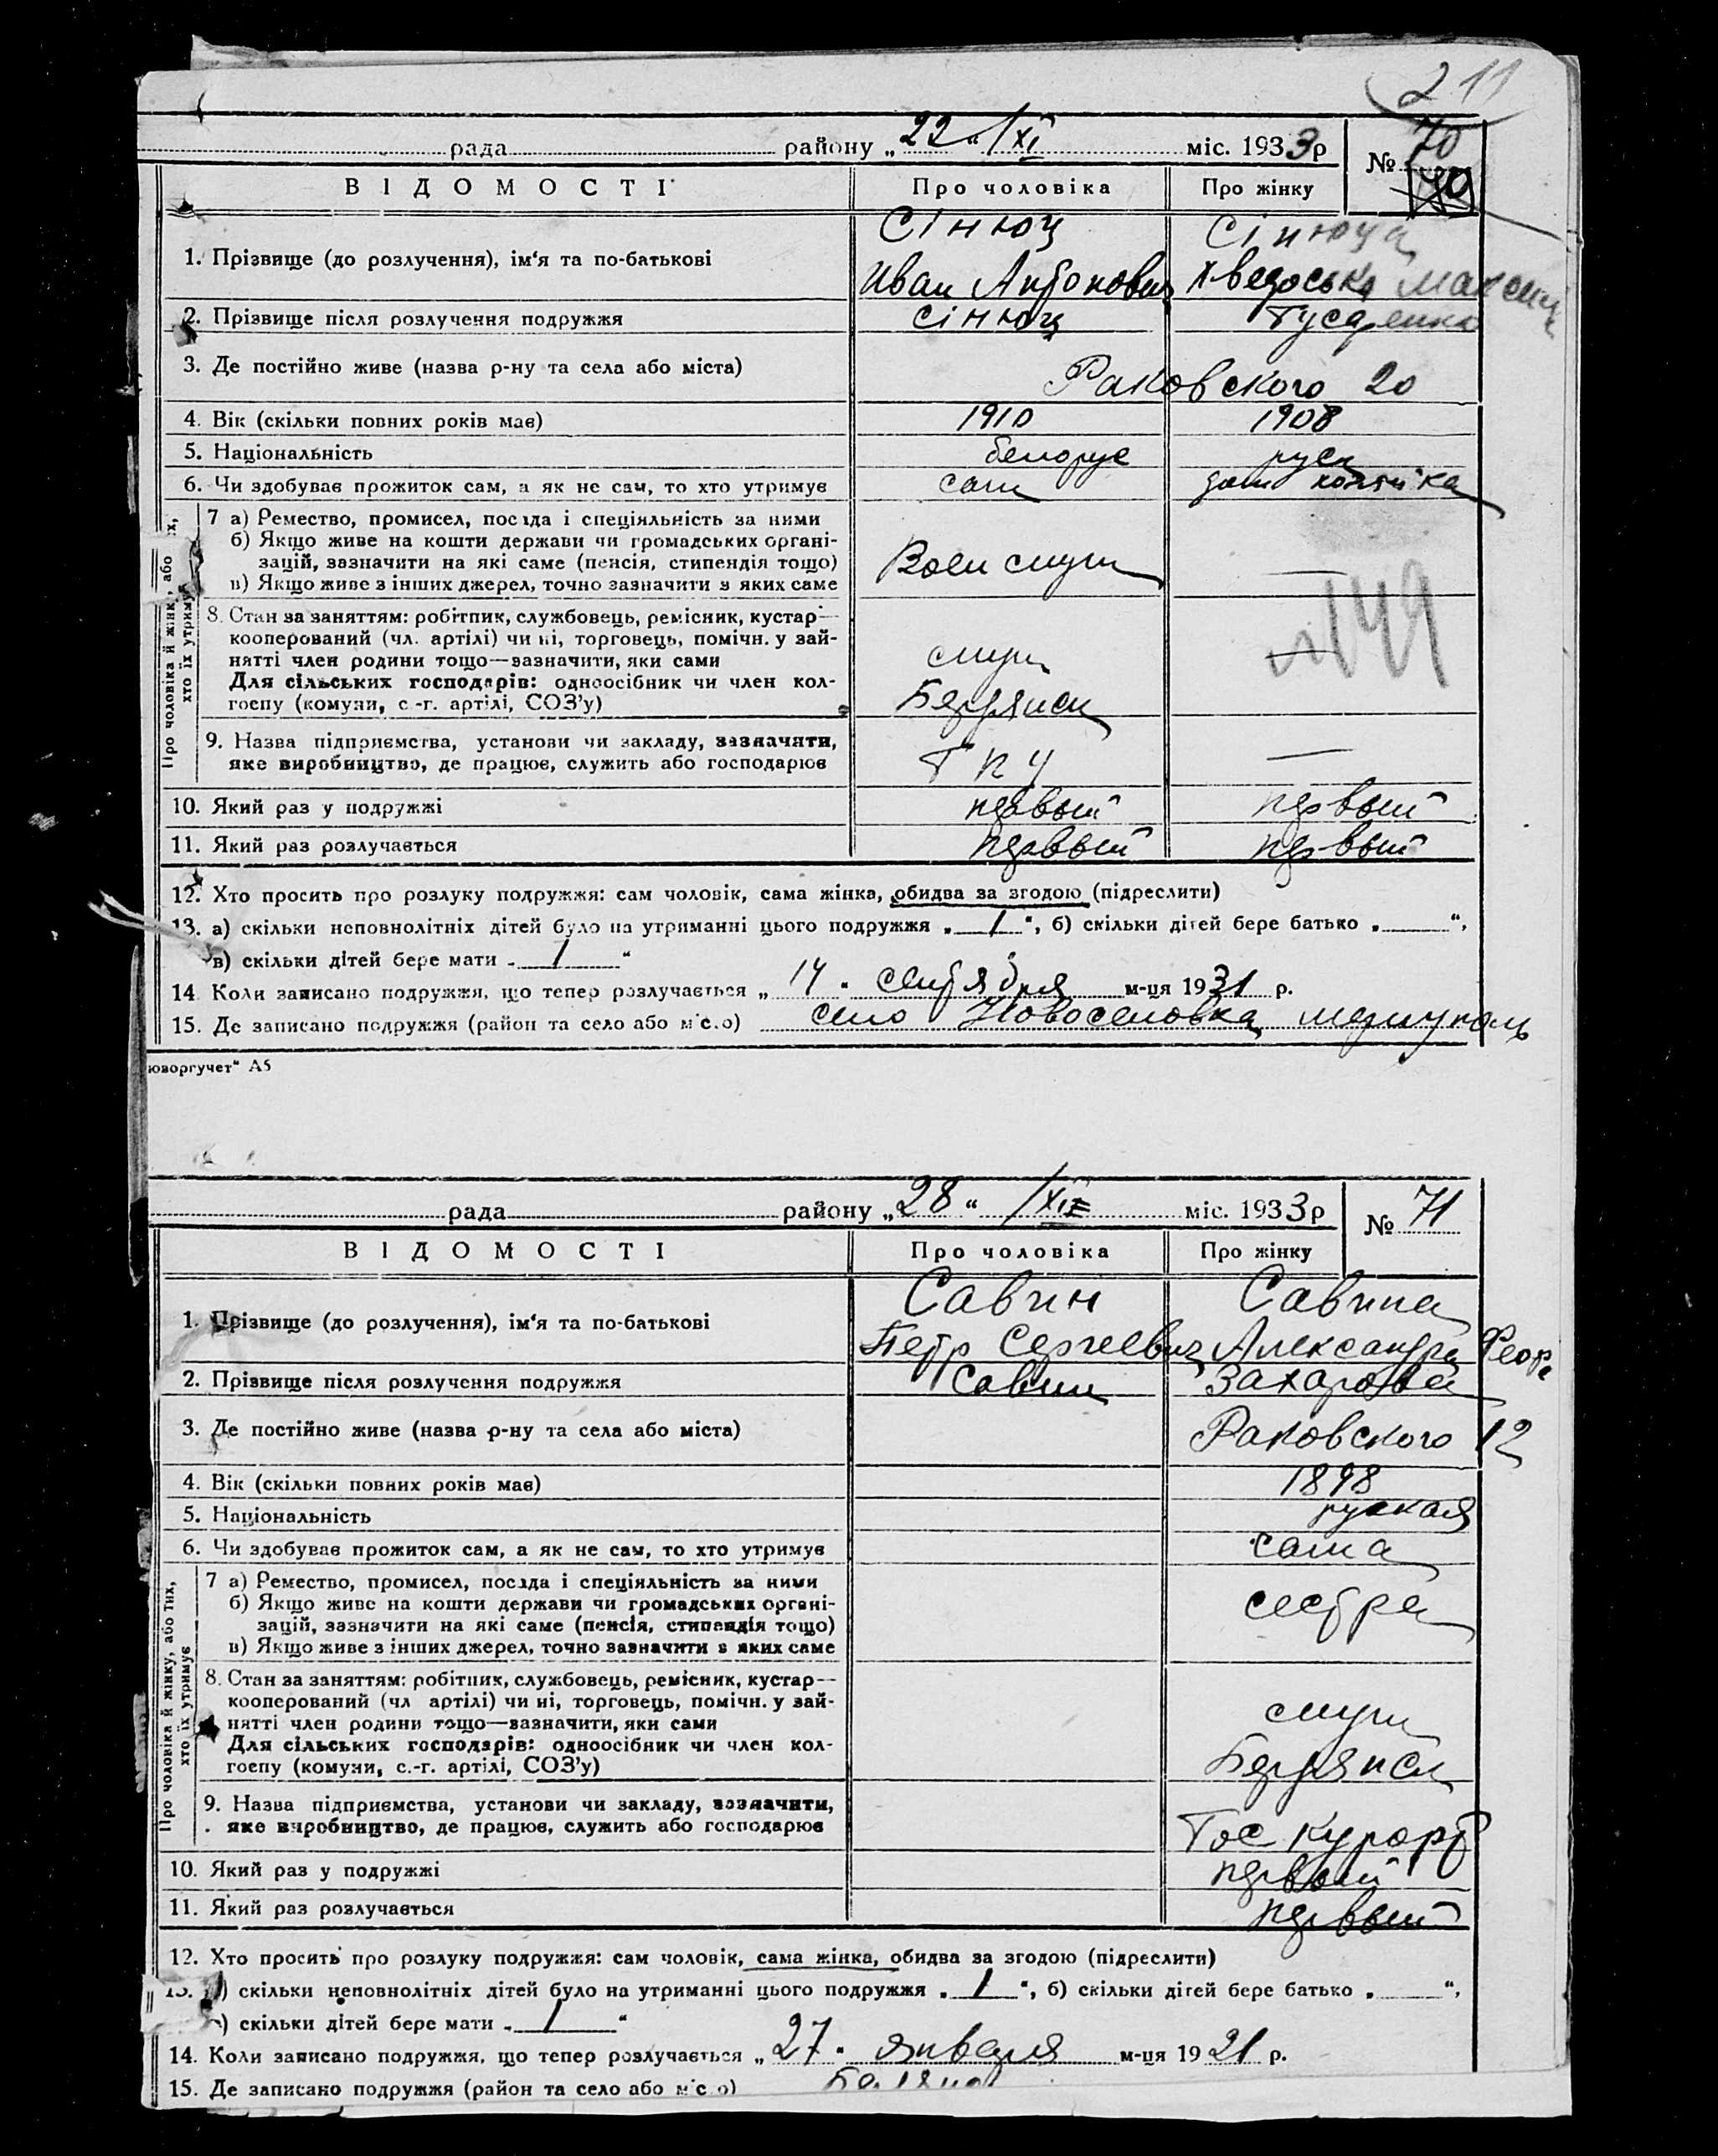 211
рада району „22“ /XI міс. 1933р № 70
ВІДОМОСТІ Про чоловіка Про жінку
Сінюц Сінюца
1. Прізвище (до розлучення), ім‘я та по-батькові
Иван Антонович Хведоська Максим
2. Прізвище після розлучення подружжя Сінюц Гусаренко
3. Де постійно живе (назва р-ну та села або міста) Раковского 20
4. Вік (скільки повних років має) 1910 1908
5. Національність белорус руск
6. Чи здобуває прожиток сам, а як не сам, то хто утримує сам
Про чоловіка й жінк , або хто їх утриму
7 а) Ремество, промисел, посада і спеціяльність за ними
б) Якщо живе на кошти держави чи громадських органі-
зацій, зазначити на які саме (пенсія, стипендія тощо) Воен служ —
в) Якщо живе з інших джерел, точно зазначити з яких саме
149
8. Стан за заняттям: робітник, службовець, ремісник, кустар—
кооперований (чл. артілі) чи ні, торговець, помічн. у зай-
нятті член родини тощо—зазначити, яки сами служ —
Для сільських господарів: одноосібник чи член кол-
госпу (комуни, с.-г. артілі, СОЗ’у) Бердянск
9. Назва підприємства, установи чи закладу, зазначити,
яке виробництво, де працює, служить або господарює ГПУ —
10. Який раз у подружжі первый первый
11. Який раз розлучається первый первый
12. Хто просить про розлуку подружжя: сам чоловік, сама жінка, обидва за згодою (підреслити)
13. а) скільки неповнолітніх дітей було на утриманні цього подружжя „ 1 “, б) скільки дітей бере батько „ “,
в) скільки дітей бере мати „ 1 “
14. Коли записано подружжя, що тепер розлучається „ 14 “ сентября м-ця 1931 р.
15. Де записано подружжя (район та село або міс.о) село Новоселовка
юворгучет“ А5
рада району „28“ /XII міс. 1933р № 71
ВІДОМОСТІ Про чоловіка Про жінку
Савин Савина
1. Прізвище (до розлучення), ім‘я та по-батькові
Петр Сергеевич Александра Феор
2. Прізвище після розлучення подружжя Савин Захарова
3. Де постійно живе (назва р-ну та села або міста) Раковского 12
4. Вік (скільки повних років має) 1898
5. Національність руская
6. Чи здобуває прожиток сам, а як не сам, то хто утримує сама
Про чоловіка й жінку, або тих, хто їх утримує
7 а) Ремество, промисел, посада і спеціяльність за ними
б) Якщо живе на кошти держави чи громадських органі- сестра
зацій, зазначити на які саме (пенсія, стипендія тощо)
в) Якщо живе з інших джерел, точно зазначити з яких саме
8. Стан за заняттям: робітник, службовець, ремісник, кустар—
кооперований (чл артілі) чи ні, торговець, помічн. у зай-
нятті член родини тощо—зазначити, яки сами служ
Для сільських господарів: одноосібник чи член кол-
госпу (комуни, с.-г. артілі, СОЗ’у) Бердянск
9. Назва підприємства, установи чи закладу, зазначити,
яке виробництво, де працює, служить або господарює Гос Курорт
10. Який раз у подружжі первый
11. Який раз розлучається первый
12. Хто просить про розлуку подружжя: сам чоловік, сама жінка, обидва за згодою (підреслити)
13. ) скільки неповнолітніх дітей було на утриманні цього подружжя „ 1 “, б) скільки дітей бере батько „ “,
) скільки дітей бере мати „ 1 “
14. Коли записано подружжя, що тепер розлучається „ 27 “ января м-ця 1921 р.
15. Де записано подружжя (район та село або міс о)